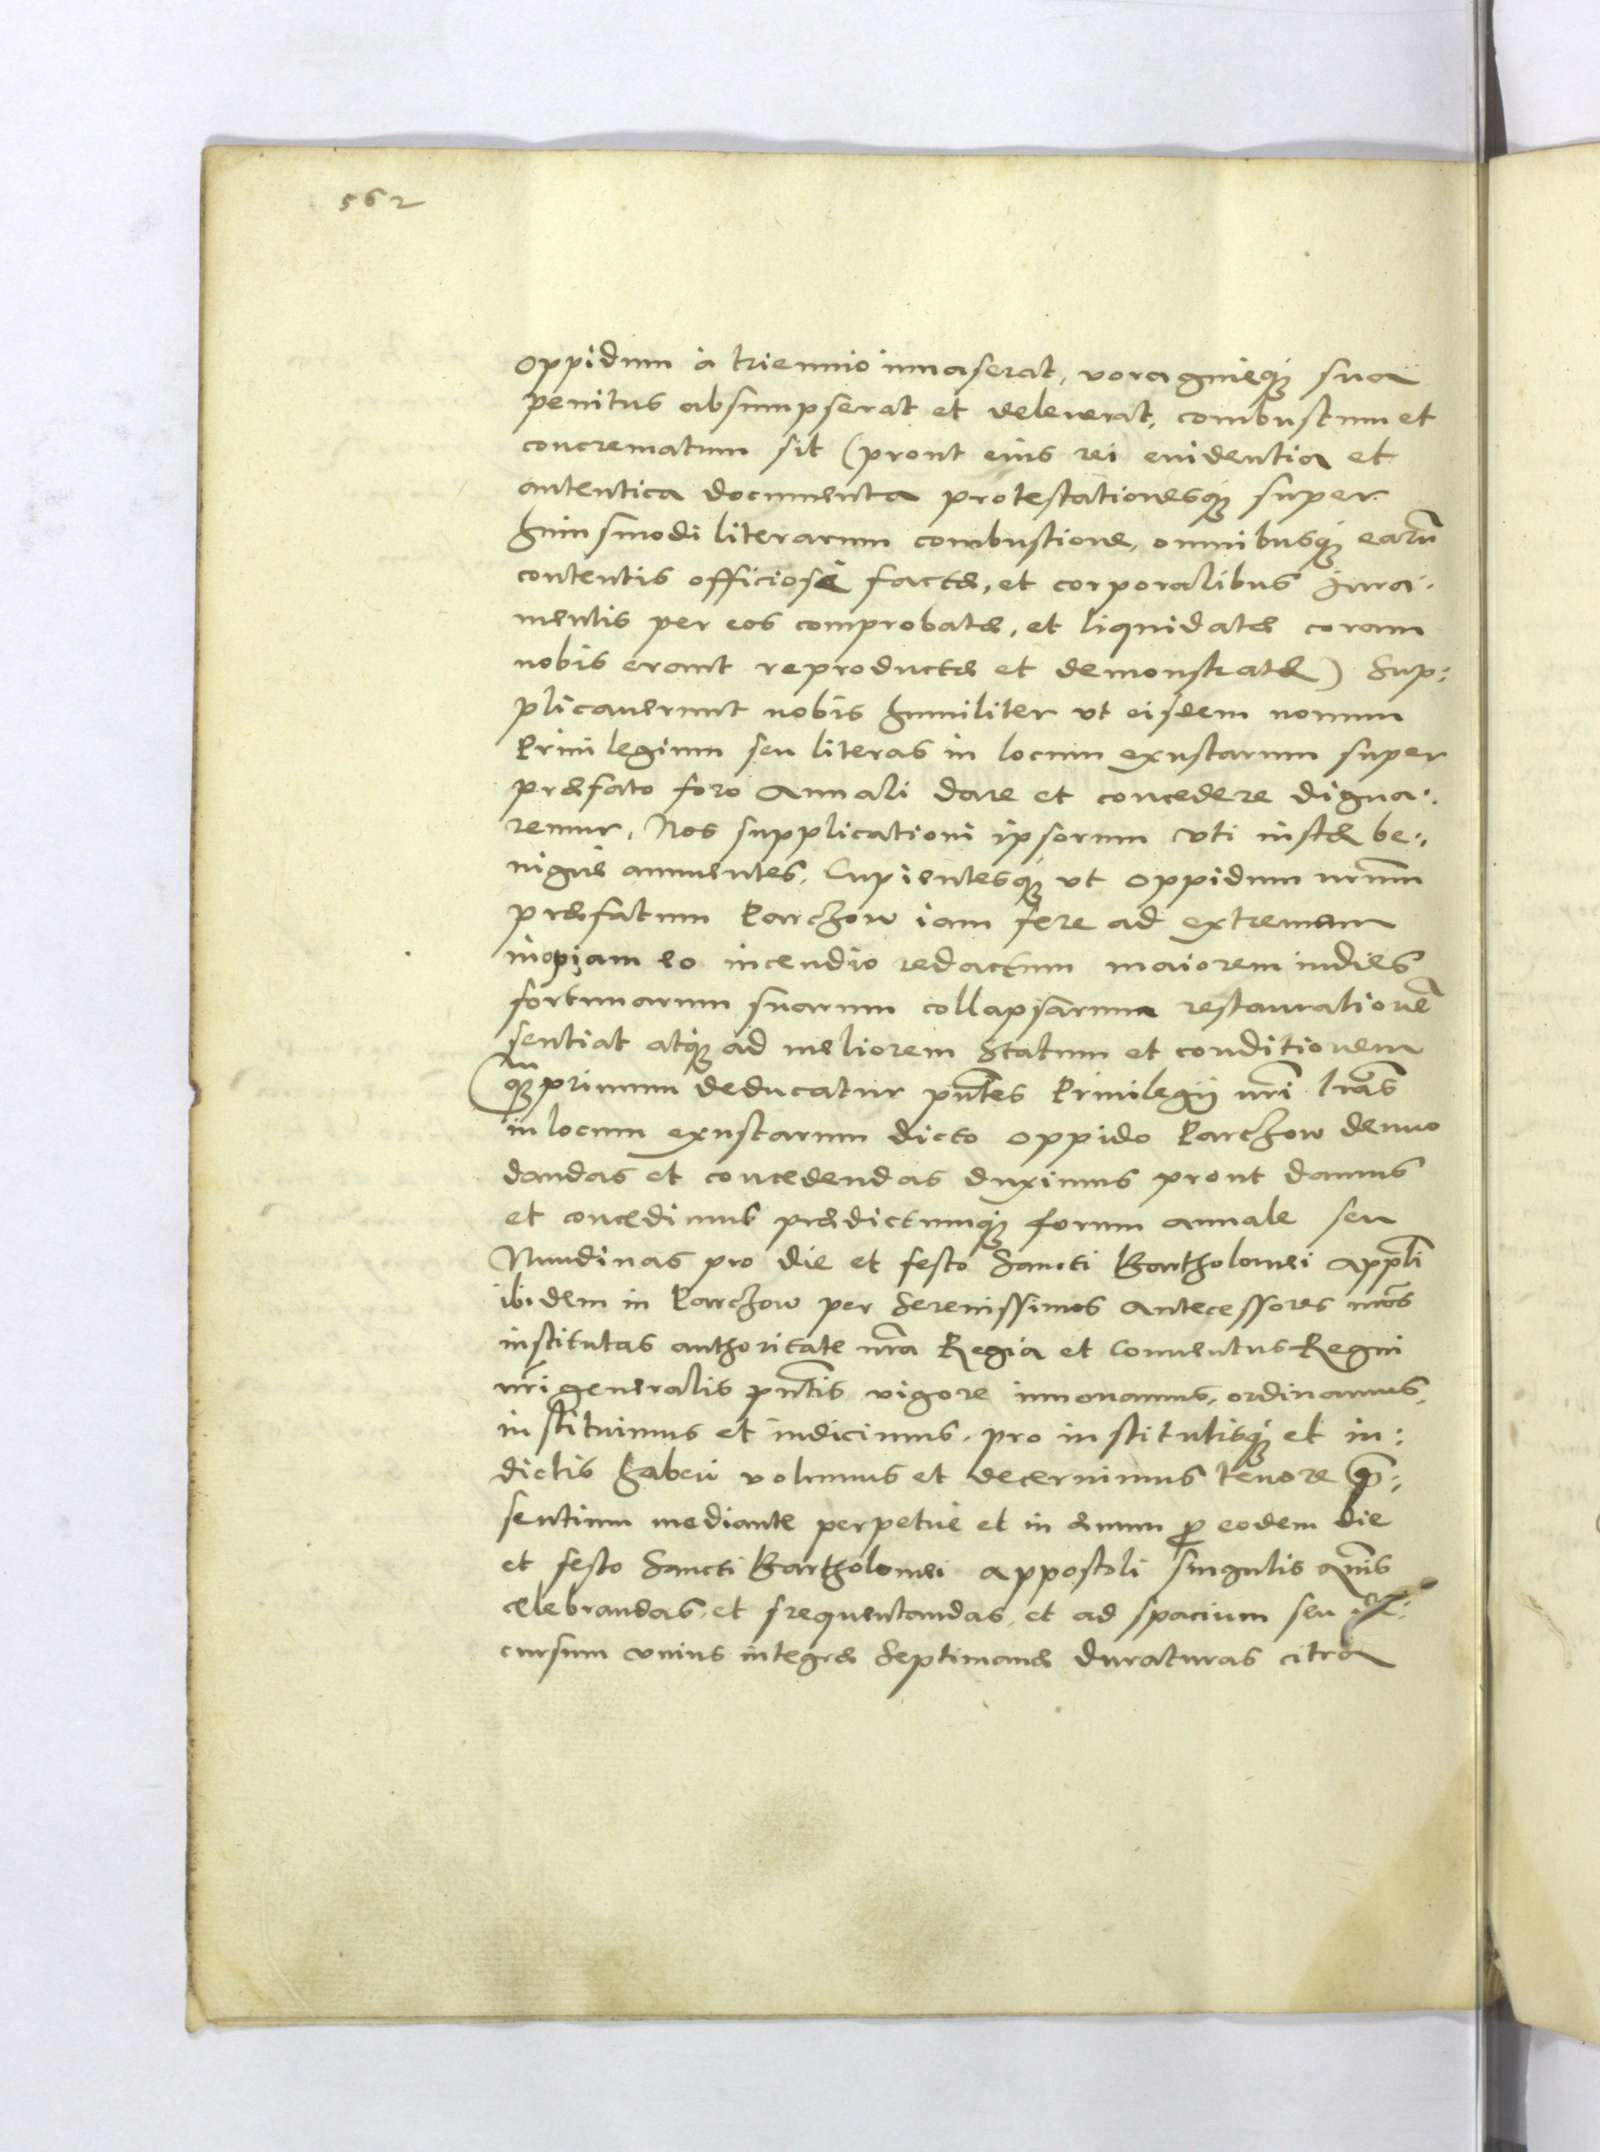 562
oppidum à triennio inuaserat, voragineq3 sua
penitus absumpserat et deleuerat, combustum et
concrematum sit (prout eius rei euidentia et
autentica documenta protestationesq3 super
huiusmodi literarum combustione, omnibusq3 earũ
contentis officiosè factæ, et corporalibus iura:
mentis per eos comprobatæ, et liquidatæ coram
nobis erant reproductæ et demonstratæ) Sup:
plicauerunt nobis humiliter vt eisdem nouum
Priuilegium seu literas in locum exustarum super
præfato foro Annali dare et concedere digna:
remur. Nos supplicationi ipsorum vti iustæ be:
nignè annuentes, Cupientesq3 vt oppidum nrũm
præfatum Parchow iam fere ad extremam
inopiam eo incendio redactum maiorem indies
fortunarum suarum collapsarum restaurationẽ
sentiat atq3 ad meliorem Statum et conditionem
q3primum deducatur pñtes Priuilegij nr̃i lr̃as
in locum exustarum dicto oppido Parchow denuo
dandas et concedendas duximus prout damus
et concedimus prædictumq3 forum annale seu
Nundinas pro die et festo Sancti Bartholomei App̃li
ibidem in Parchow per Serenissimos Antecessores nr̃os
institutas authoritate nr̃a Regia et Conuentus Regni
nr̃i generalis pñtis vigore innouamus, ordinamus,
instituimus et indicimus, pro institutisq3 et in:
dictis haberi volumus et decernimus tenore præ:
sentium mediante perpetuè et in æuum p̱ eodem die
et festo Sancti Bartholomei Appostoli singulis Annis
celebrandas, et frequentandas, et ad spacium seu
cursum vnius integræ Septimanæ duraturas citra